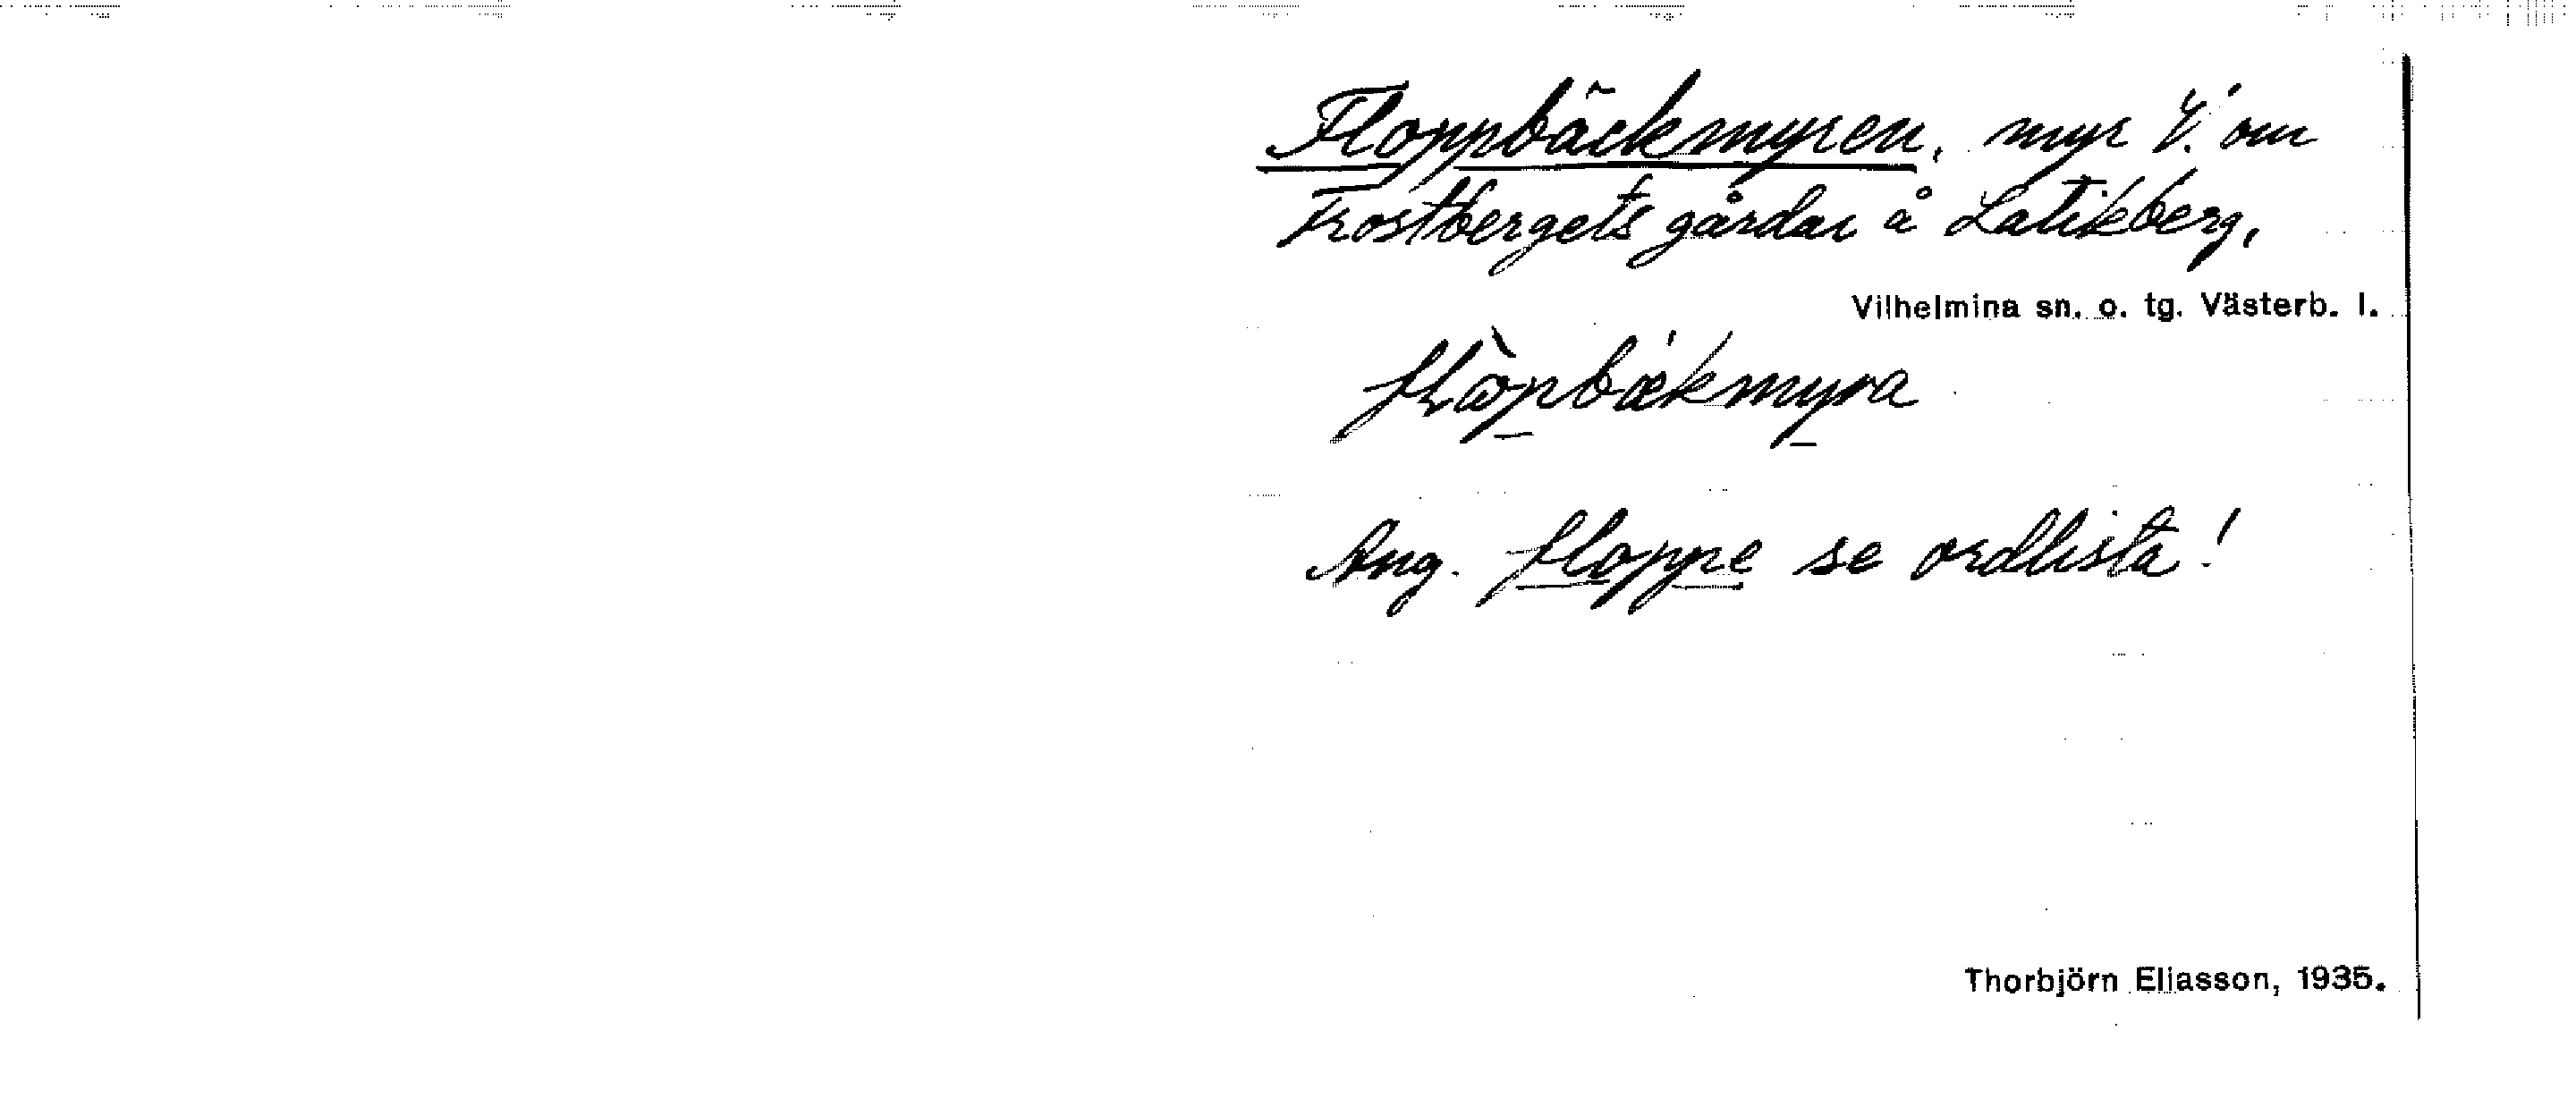 Floppbäckmyren, myr V. om
Frostbergets gårdar å Latikberg,
Vilhelmina sn. o. tg. Västerb. l.
flòpbækmyra
Ang. floppe se ordlista!
Thorbjörn Eliasson, 1935.